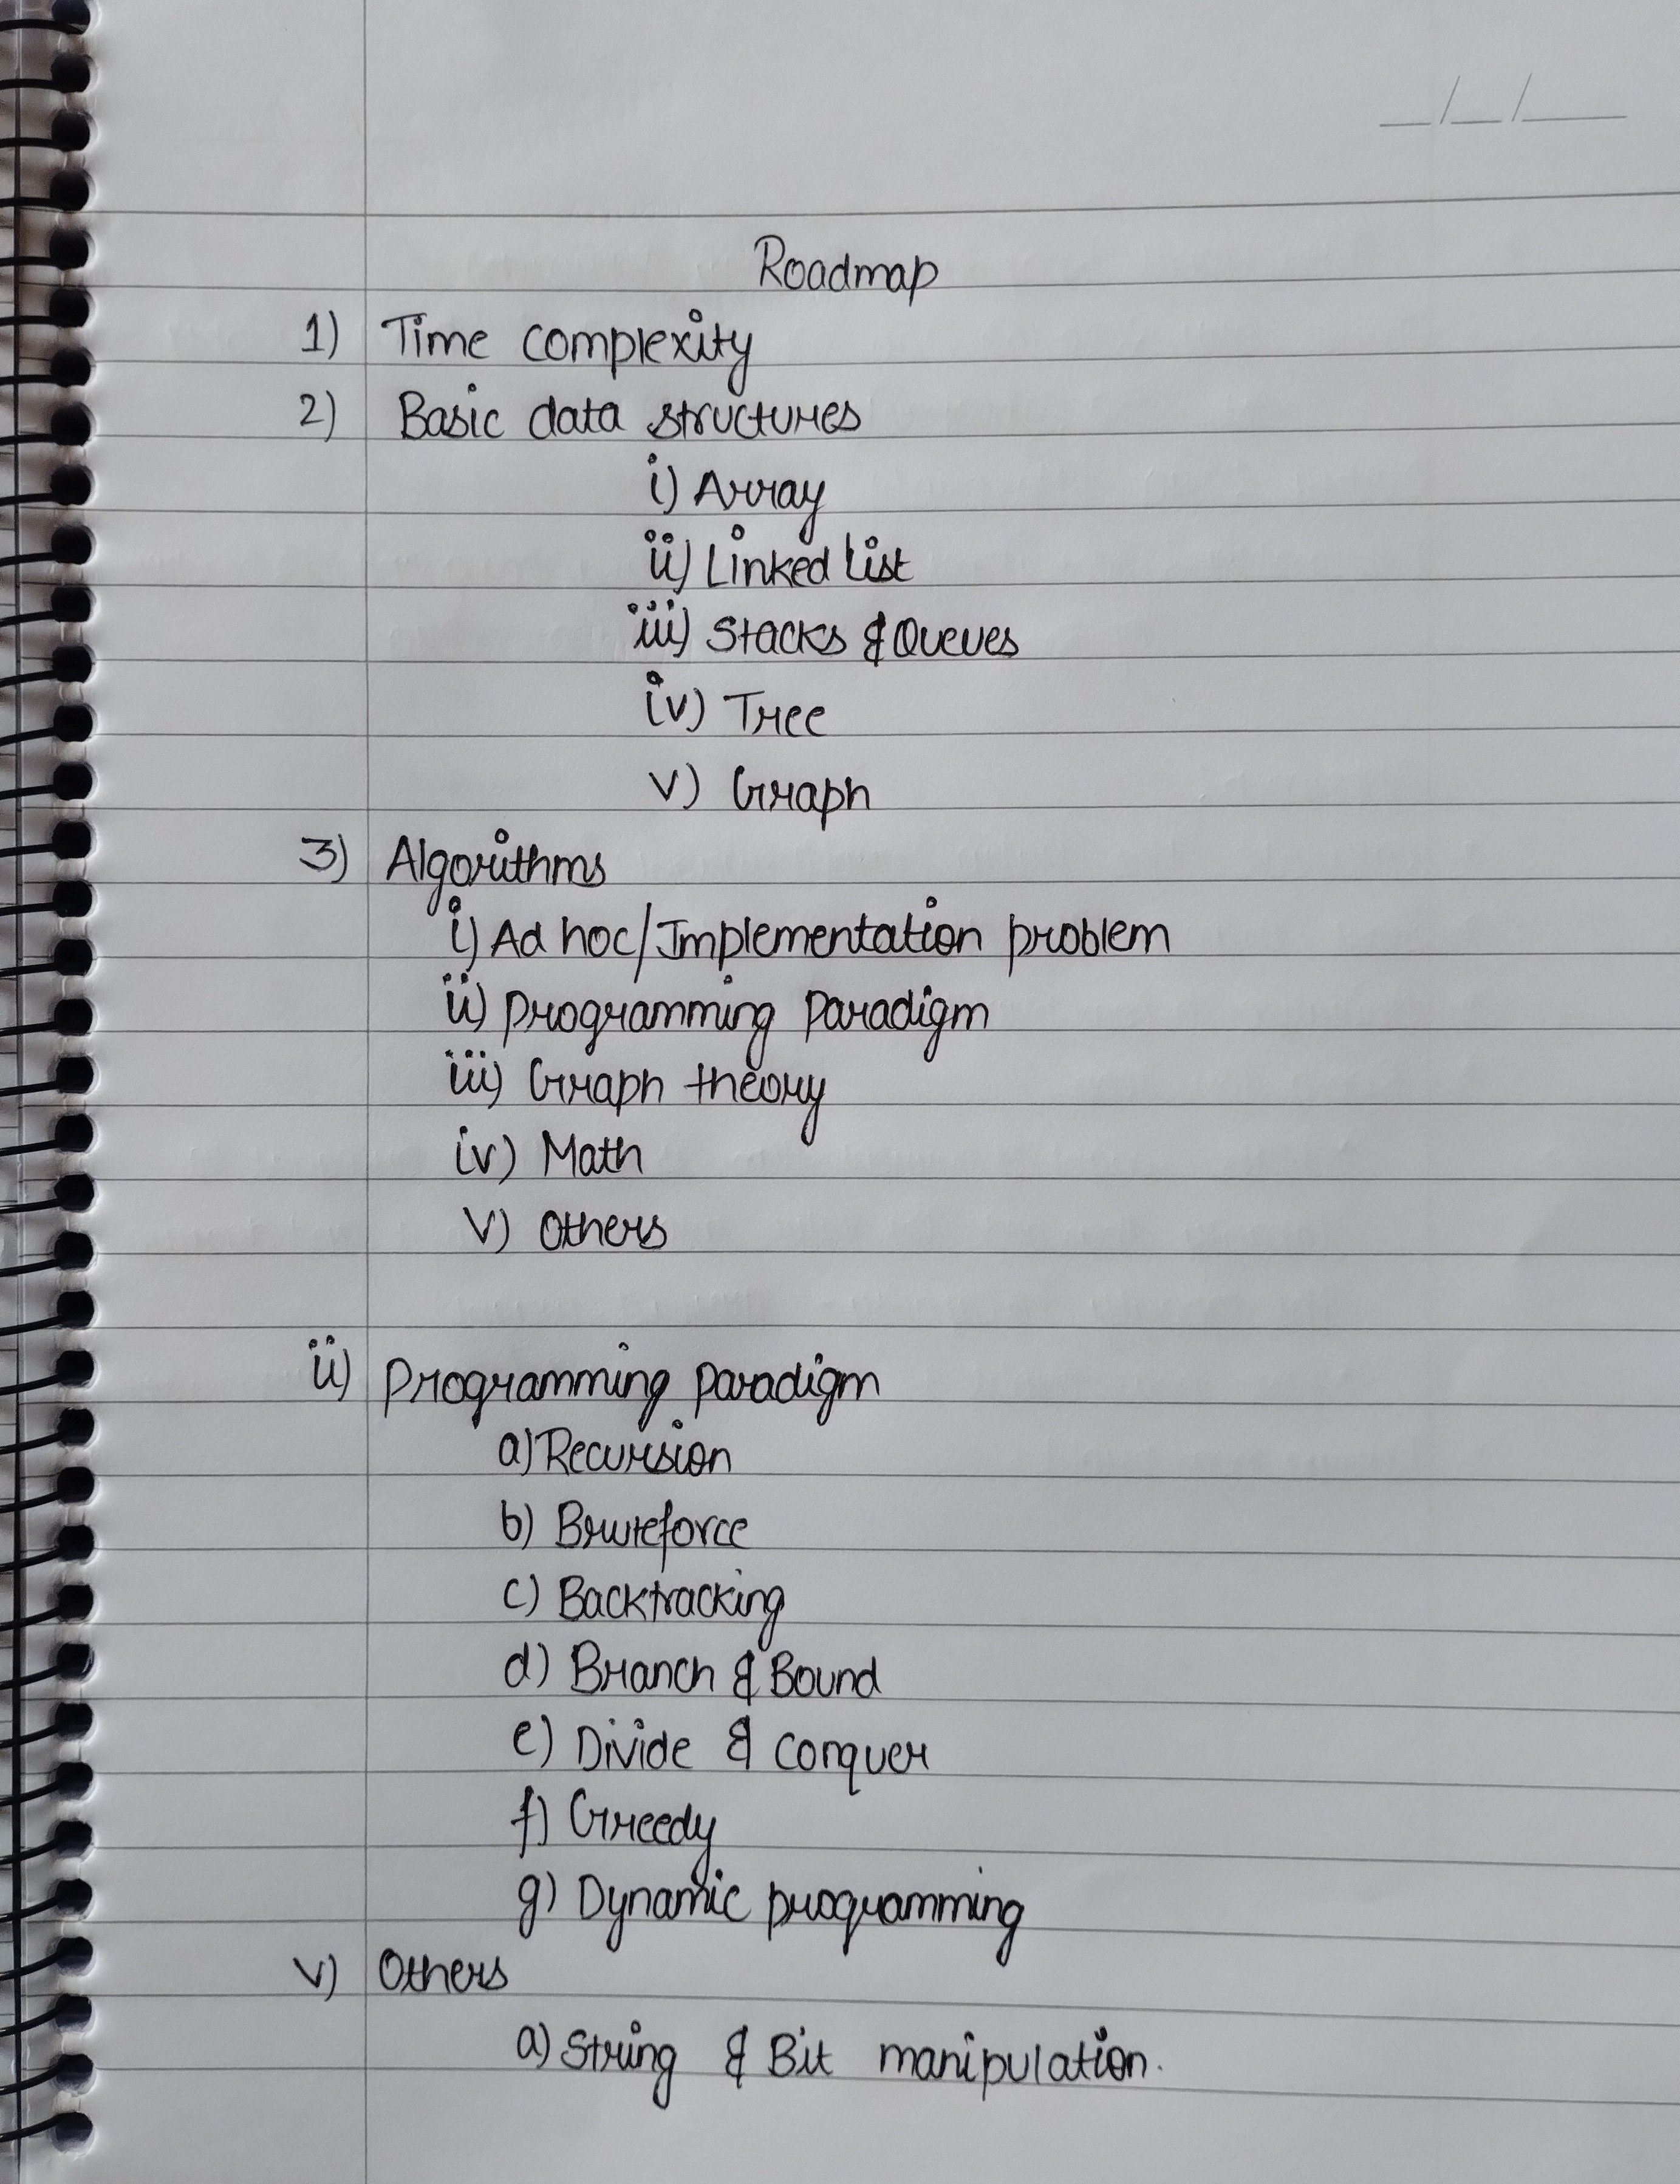 Roadmap
1) Time complexity
2) Basic data structures
i) Array
ii) Linked List
iii) Stacks & Queues
iv) Tree
v) Graph
3) Algorithms
i) Ad hoc/Implementation problem
ii) Programming Paradigm
iii) Graph theory
iv) Math
v) Others
ii) Programming Paradigm
a) Recursion
b) Bruteforce
c) Backtracking
d) Branch & Bound
e) Divide & Conquer
f) Greedy
g) Dynamic programming
v) Others
a) String & Bit manipulation.